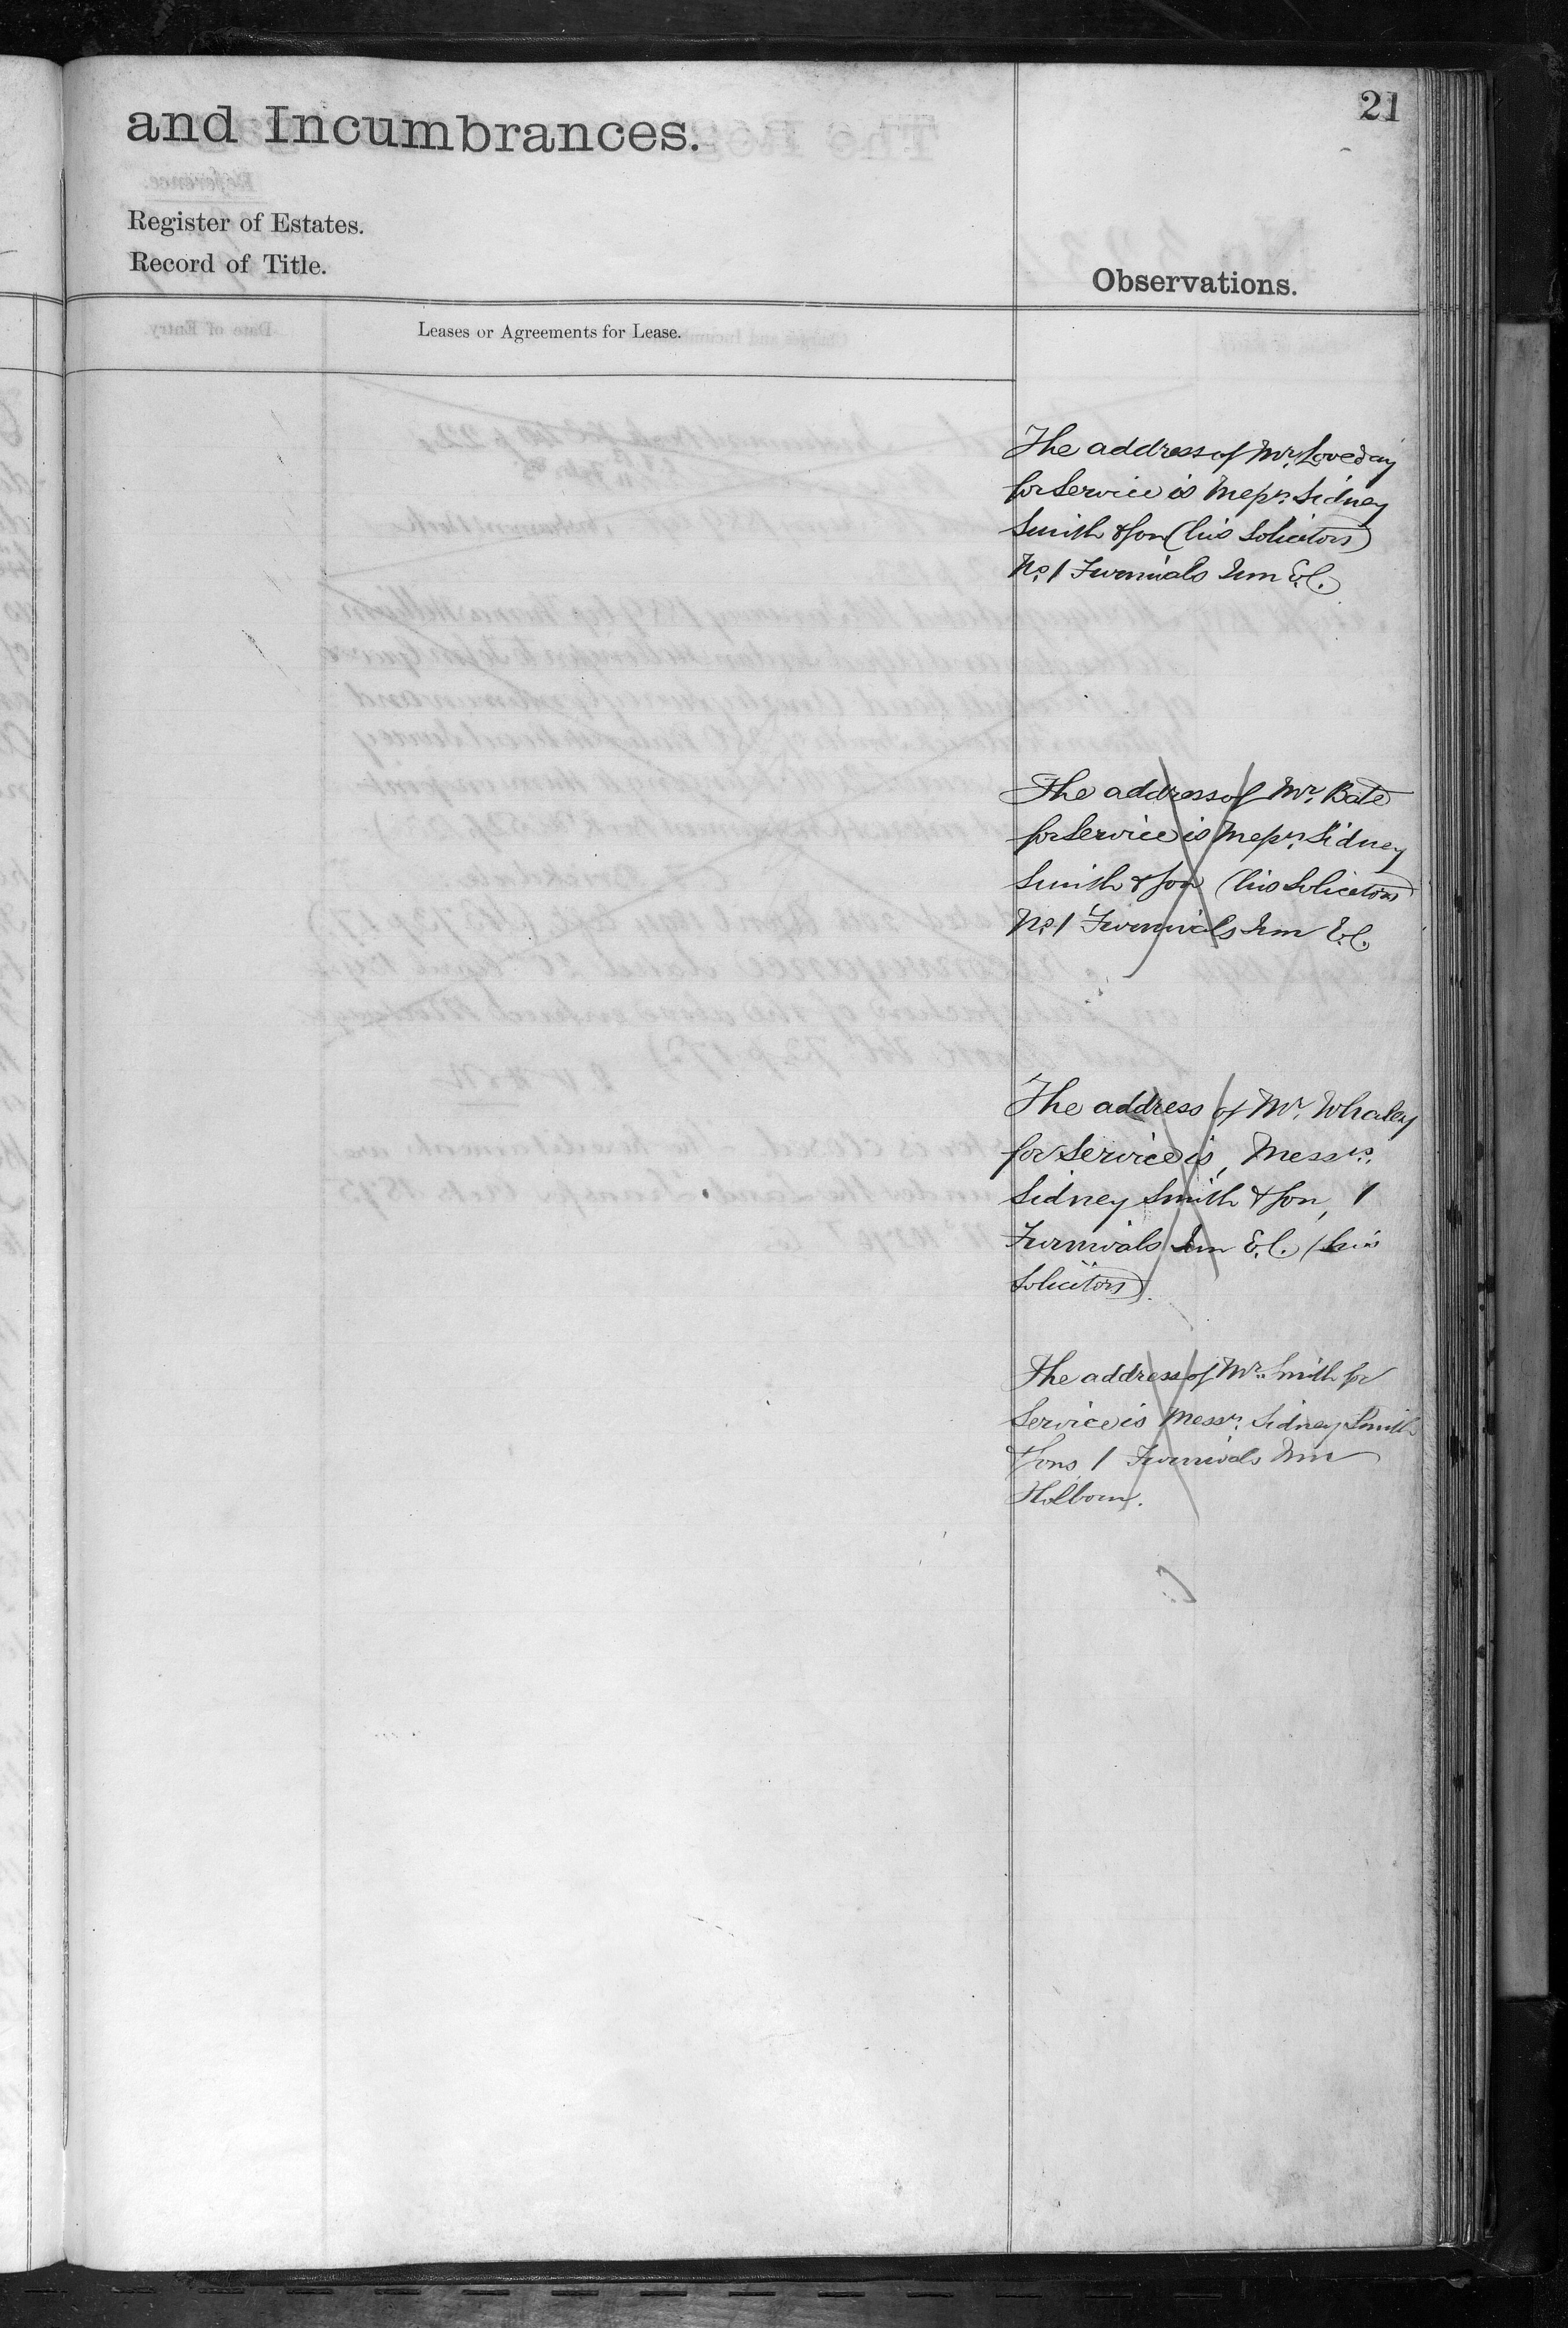 21
and Incumbrances.
Register of Estates.
Record of Title.
Observations.
Leases or Agreements for Lease.
The address of Mr. Loveday
for Service is Messrs. Sidney
Smith & Son (his Solicitors)
No. 1 Furnivals Inn E.C.
The address of Mr. Bate
for Service is Messrs. Sidney
Smith & Son (his Solicitors
No. 1 Furnivals Inn E.C.
The address of Mr. Whaley
for Service is, Messrs.
Sidney Smith & Son, 1
Furnivals Inn E.C. (his
Solicitors).
The address of Mr. Smith for
Service is Messrs. Sidney Smith
& Sons 1 Furnivals Inn
Holborn.